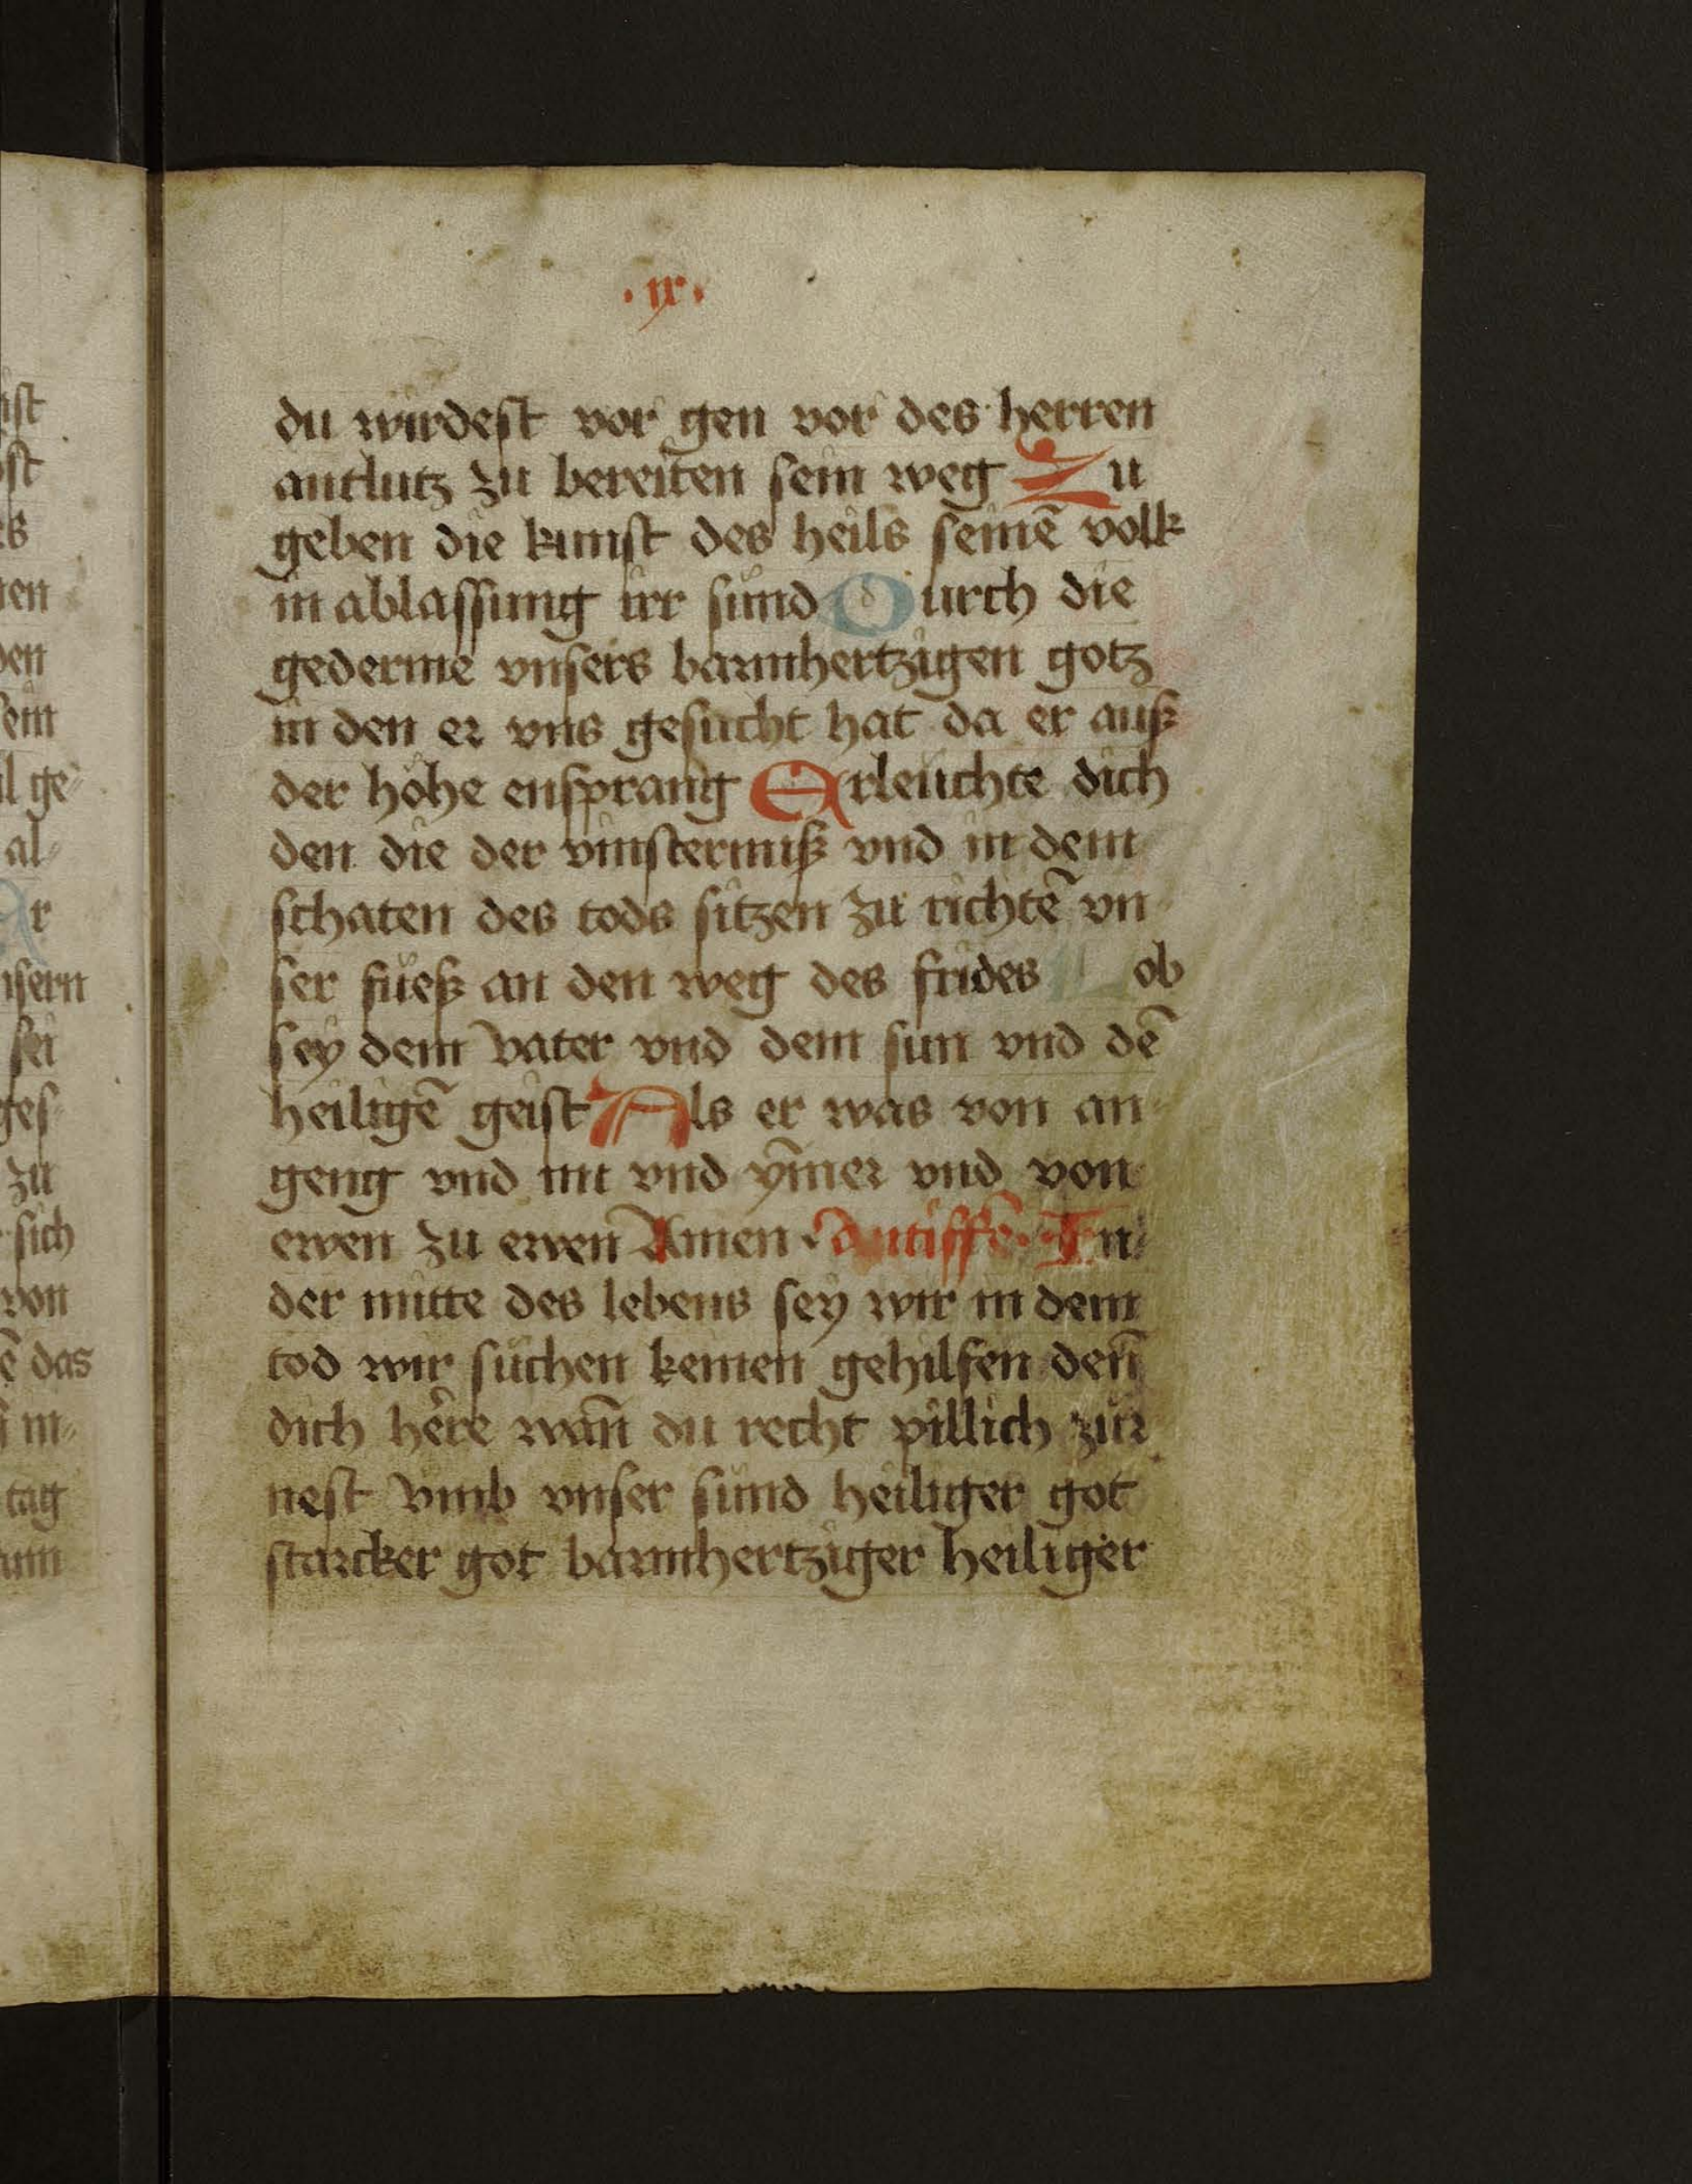 · ix ·
du wirdest vor gen vor des herren
antlutz zu bereiten sein weg Zu
geben die kunst des heils seinē volk
in ablassung irr sünd Durch die
gederme vnsers barmhertzigen gotz
in den er vns gesucht hat da er auß
der höhe ensprang Erleuchte dich
den die der vinsternuß vnd in dem
schaten des tods sitzen zu richtē vn
ser fueß an den weg des frides Lob
sey dem vater vnd dem sun vnd dē
heiligē geist Als er was von an
geng vnd nu vnd ym̄er vnd von
ewen zu ewen Amen · Antiffē · In
der mitte des lebens sey wir in dem
tod wir suchen keinen gehilfen den̄
dich here wan̄ du recht pillich zür
nest vmb vnser sünd heiliger got
starcker got barmhertziger heiliger